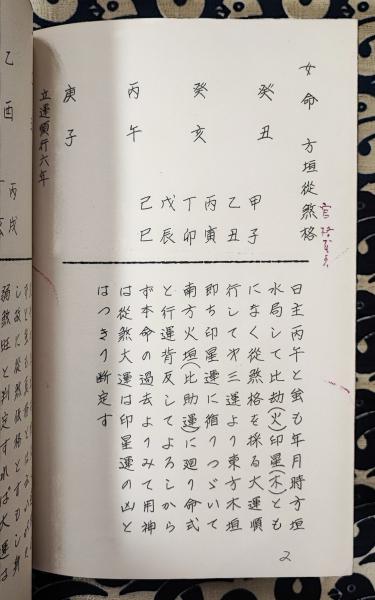 女命 方垣從煞格
癸丑
癸亥
丙午
庚子
立運順行六年
甲子
乙丑
丙寅
丁卯
戊辰
己巳
日主丙午と蛍も年月時方垣
水局して比劫(火)印星(木)とも
になく從煞格を採る大運順
行して才三運より東方木垣
即ち印星運に循りつゞいて
南方火垣(比助運)に廻り命式
と行運背反してよろしから
ず本命の過去よりみて用神
は從煞大運は印星運の凶と
はつきり断定す
2
乙酉
丙戌
弱煞旺と判定すれば大運は